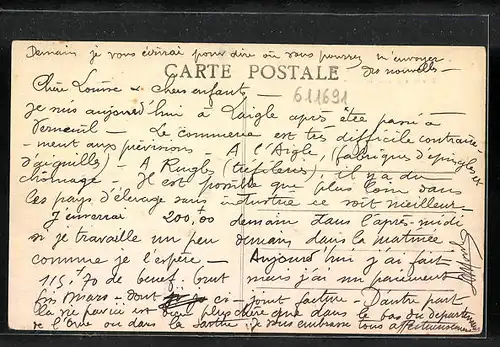 Demain je vous écrirai pour dire où vous pourrez m'envoyer
des nouvelles —
CARTE POSTALE
611691
Chère Louise & chers enfants —
Je suis aujourd'hui à Laigle après être passé à
Verneuil — Le commerce est très difficile contraire-
-ment aux prévisions. — A l'Aigle, (fabriques d'épingles et
d'aiguilles) A Rugles (tréfileries), il y a du
chômage — Il est possible que plus loin dans
les pays d'élevage sans industrie ce soit meilleur.
J'enverrai 200,00 demain dans l'après-midi
si je travaille un peu demain dans la matinée
comme je l'espère — Aujourd'hui j'ai fait
115,70 de benef. brut mais j'ai un paiement
fin Mars — dont ci-joint facture — D'autre part
la vie par ici est bien plus chère que dans le bas du département
de l'Orne ou dans la Sarthe. Je vous embrasse tous affectueusement